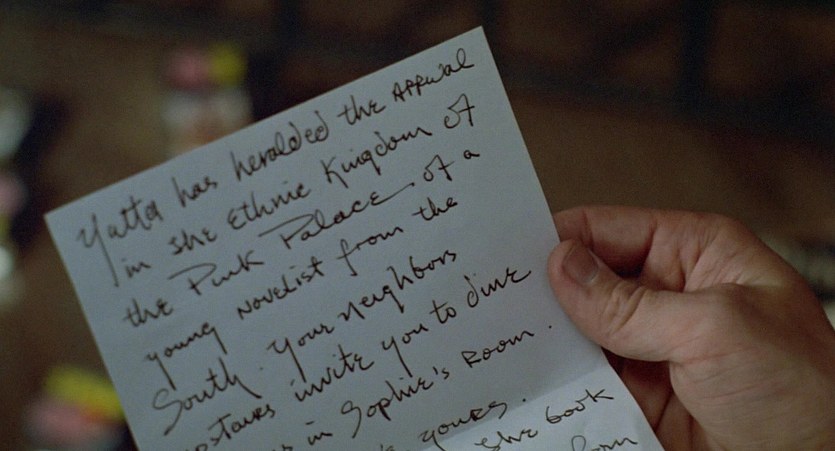 Yatta has heralded the arrival
in the Ethnic Kingdom of
the Pink Palace of a
young novelist from the
South. Your neighbors
upstairs invite you to dine
in Sophie's Room.
yours.
she took